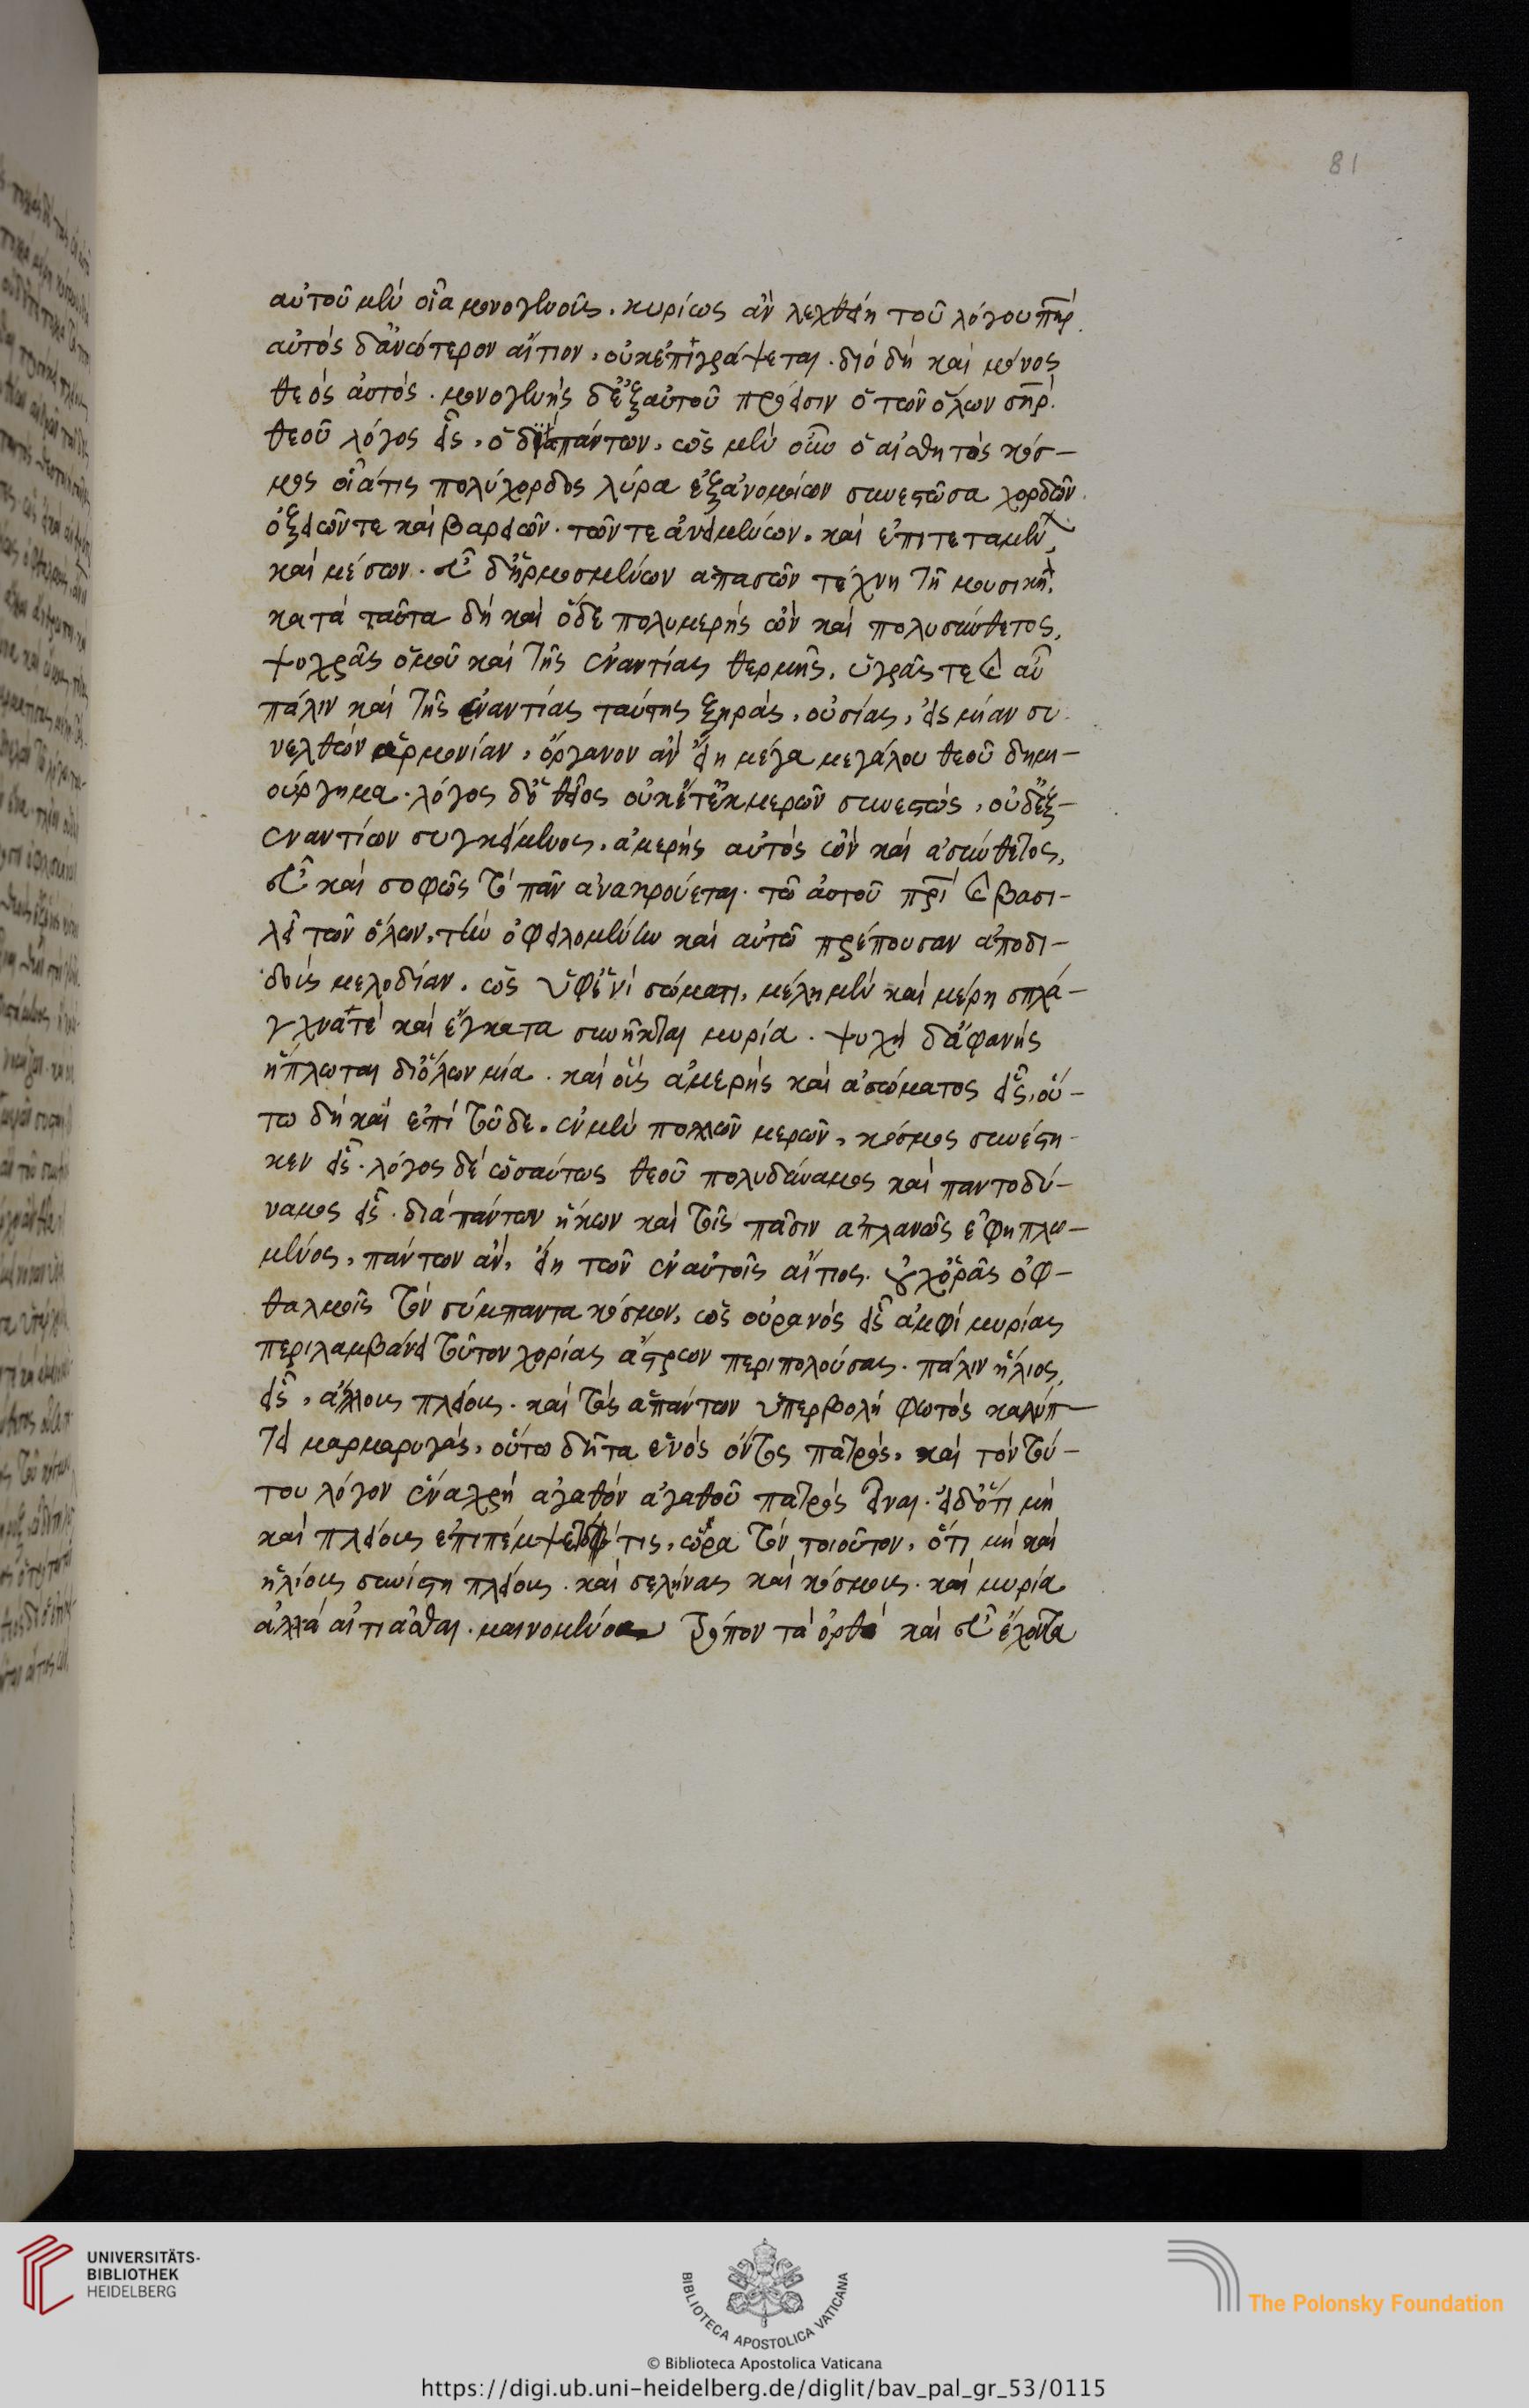 81
αὐτοῦ μὲν οἷα μονογενοῦς. κυρίως ἂν λεχθείη τοῦ λόγου πηρ.
αὐτὸς δ' ἀνώτερον αἴτιον, οὐκ ἐπιγράψεται. διὸ δὴ καὶ μόνος
θεὸς αὐτός. μονογενὴς δὲ ἐξ αὐτοῦ πρόεισιν ὁ τῶν ὅλων σηρ.
θεοῦ λόγος εἷς, ὁ διὰ πάντων. ὡς μὲν οὖν ὁ αἰσθητὸς κόσ-
μος οἷά τις πολύχορδος λύρα ἐξ ἀνομοίων συνεστῶσα χορδῶν.
ὀξειῶν τε καὶ βαρειῶν. τῶν τε ἀνειμένων. καὶ ἐπιτεταμέν,
καὶ μέσων. εὖ δ' ἡρμοσμένων ἁπασῶν τέχνη τῆ μουσικῆ.
κατὰ ταῦτα δὴ καὶ ὅδε πολυμερὴς ὢν καὶ πολυσύνθετος,
ψυχρᾶς ὁμοῦ καὶ τῆς ἐναντίας θερμῆς, ὑγρᾶς τε καὶ αὖ
πάλιν καὶ τῆς ἐναντίας ταύτης ξηρᾶς, οὐσίας, εἰς μίαν συ
νελθὼν ἁρμονίαν, ὄργανον ἂν εἴη μέγα μεγάλου θεοῦ δημι-
ούργημα. λόγος δὲ θεῖος οὐκέτ' ἐκ μερῶν συνεστώς, οὐδ' ἐξ-
ἐναντίων συγκείμενος. ἀμερὴς αὐτὸς ὢν καὶ ἀσύνθετος,
εὖ καὶ σοφῶς τὸ πᾶν ἀνακρούεται. τῶ αὐτοῦ πρι καὶ βασι-
λεῖ τῶν ὅλων, τὴν ὀφειλομένην καὶ αὐτῶ πρέπουσαν ἀποδι-
δοὺς μελωδίαν. ὡς ὑφ' ἑνὶ σώματι, μέλη μὲν καὶ μέρη σπλά-
γχνά τε καὶ ἔγκατα συνῆκται μυρία. ψυχὴ δ' ἀφανὴς
ἥπλωται δι' ὅλων μία. καὶ οὖς ἀμερὴς καὶ ἀσώματος εἷς, οὕ-
τω δὴ καὶ ἐπὶ τοῦδε. ἐν μὲν πολλῶν μερῶν, κόσμος συνέστη-
κεν εἷς. λόγος δὲ ὡσαύτως θεοῦ πολυδύναμος καὶ παντοδύ-
ναμος εἷς. διὰ πάντων ἥκων καὶ τοῖς πᾶσιν ἀπλανῶς ἐφηπλω-
μένος, πάντων ἂν, εἴη τῶν ἐν αὐτοῖς αἴτιος. οὐχ ὁρᾶς ὀφ-
θαλμοῖς τὸν σύμπαντα κόσμον, ὡς οὐρανὸς εἷς ἀμφὶ μυρίας
περιλαμβάνει τοῦτον χορείας ἄστρων περιπολούσας. πάλιν ἥλιος,
εἷς, ἄλλους πλείους. καὶ τὰς ἁπάντων ὑπερβολῆ φωτὸς καλύπ-
τει μαρμαρυγάς, οὕτω δῆτα ἑνὸς ὄντος πατρός, καὶ τὸν τού-
του λόγον ἕνα χρὴ ἀγαθὸν ἀγαθοῦ πατρὸς εἶναι. εἰ δ' ὅτι μὴ
καὶ πλείους ἐπιπέμψοιτό τις, ὥρα τὸν τοιοῦτον, ὅτι μὴ καὶ
ἡλίους συνίστη πλείους. καὶ σελήνας καὶ κόσμους. καὶ μυρία
ἄλλα αἰτιᾶσθαι. μαινομένου τρόπον τὰ ὀρθὰ καὶ εὖ ἔχοντα
UNIVERSITÄTS-
BIBLIOTHEK
HEIDELBERG
BIBLIOTECA APOSTOLICA VATICANA
The Polonsky Foundation
© Biblioteca Apostolica Vaticana
https://digi.ub.uni-heidelberg.de/diglit/bav_pal_gr_53/0115